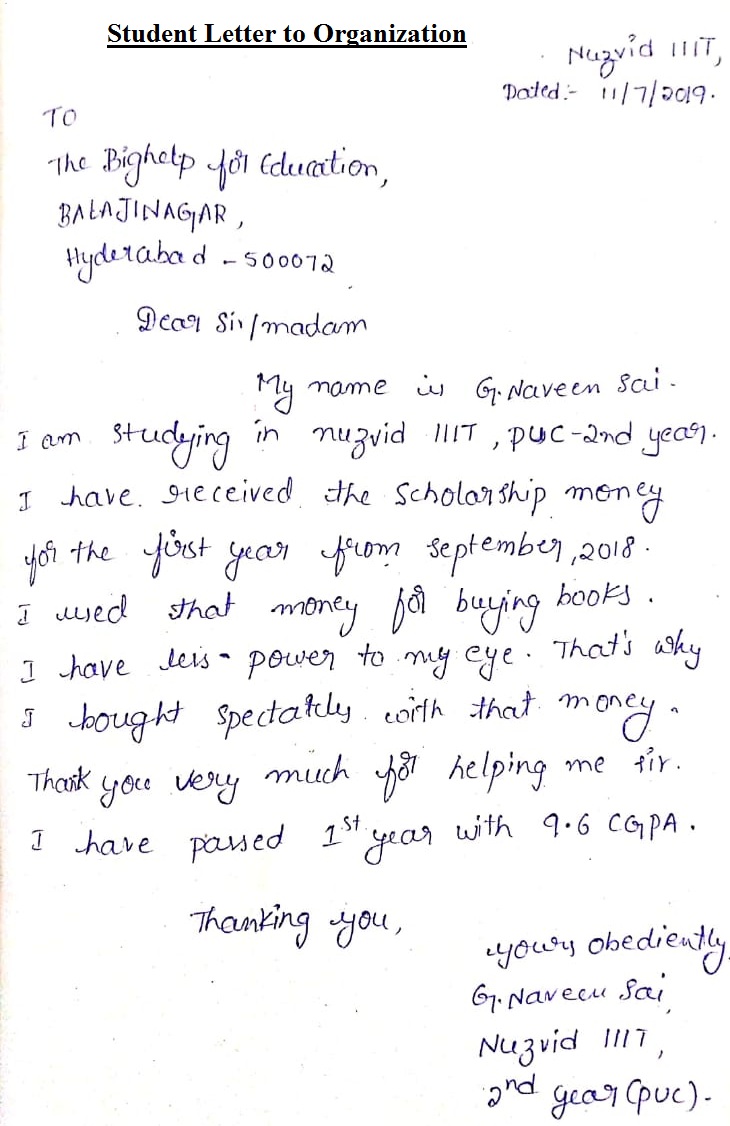 Student Letter to Organization
Nuzvid IIIT,
Dated:- 11/7/2019.
TO
The Bighelp for Education,
BALAJINAGAR,
Hyderabad - 500072
Dear Sir/madam
My name is G. Naveen Sai.
I am studying in nuzvid IIIT, PUC-2nd year.
I have received the scholarship money
for the first year from september, 2018.
I used that money for buying books.
I have less - power to my eye. That's why
I bought spectately with that money.
Thank you very much for helping me sir.
I have passed 1st year with 9.6 CGPA.
Thanking you,
yours obediently
G. Naveen Sai,
Nuzvid IIIT,
2nd year (PUC).